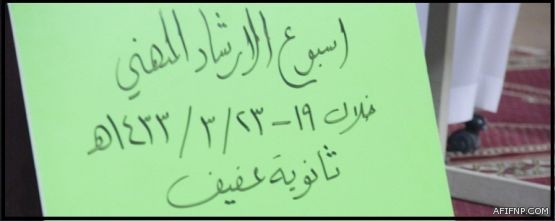 اسبوع الارشاد المهني
خلال ١٩-٢٣/٣/١٤٣٣هـ
ثانوية عفيف
AFIFNP.COM